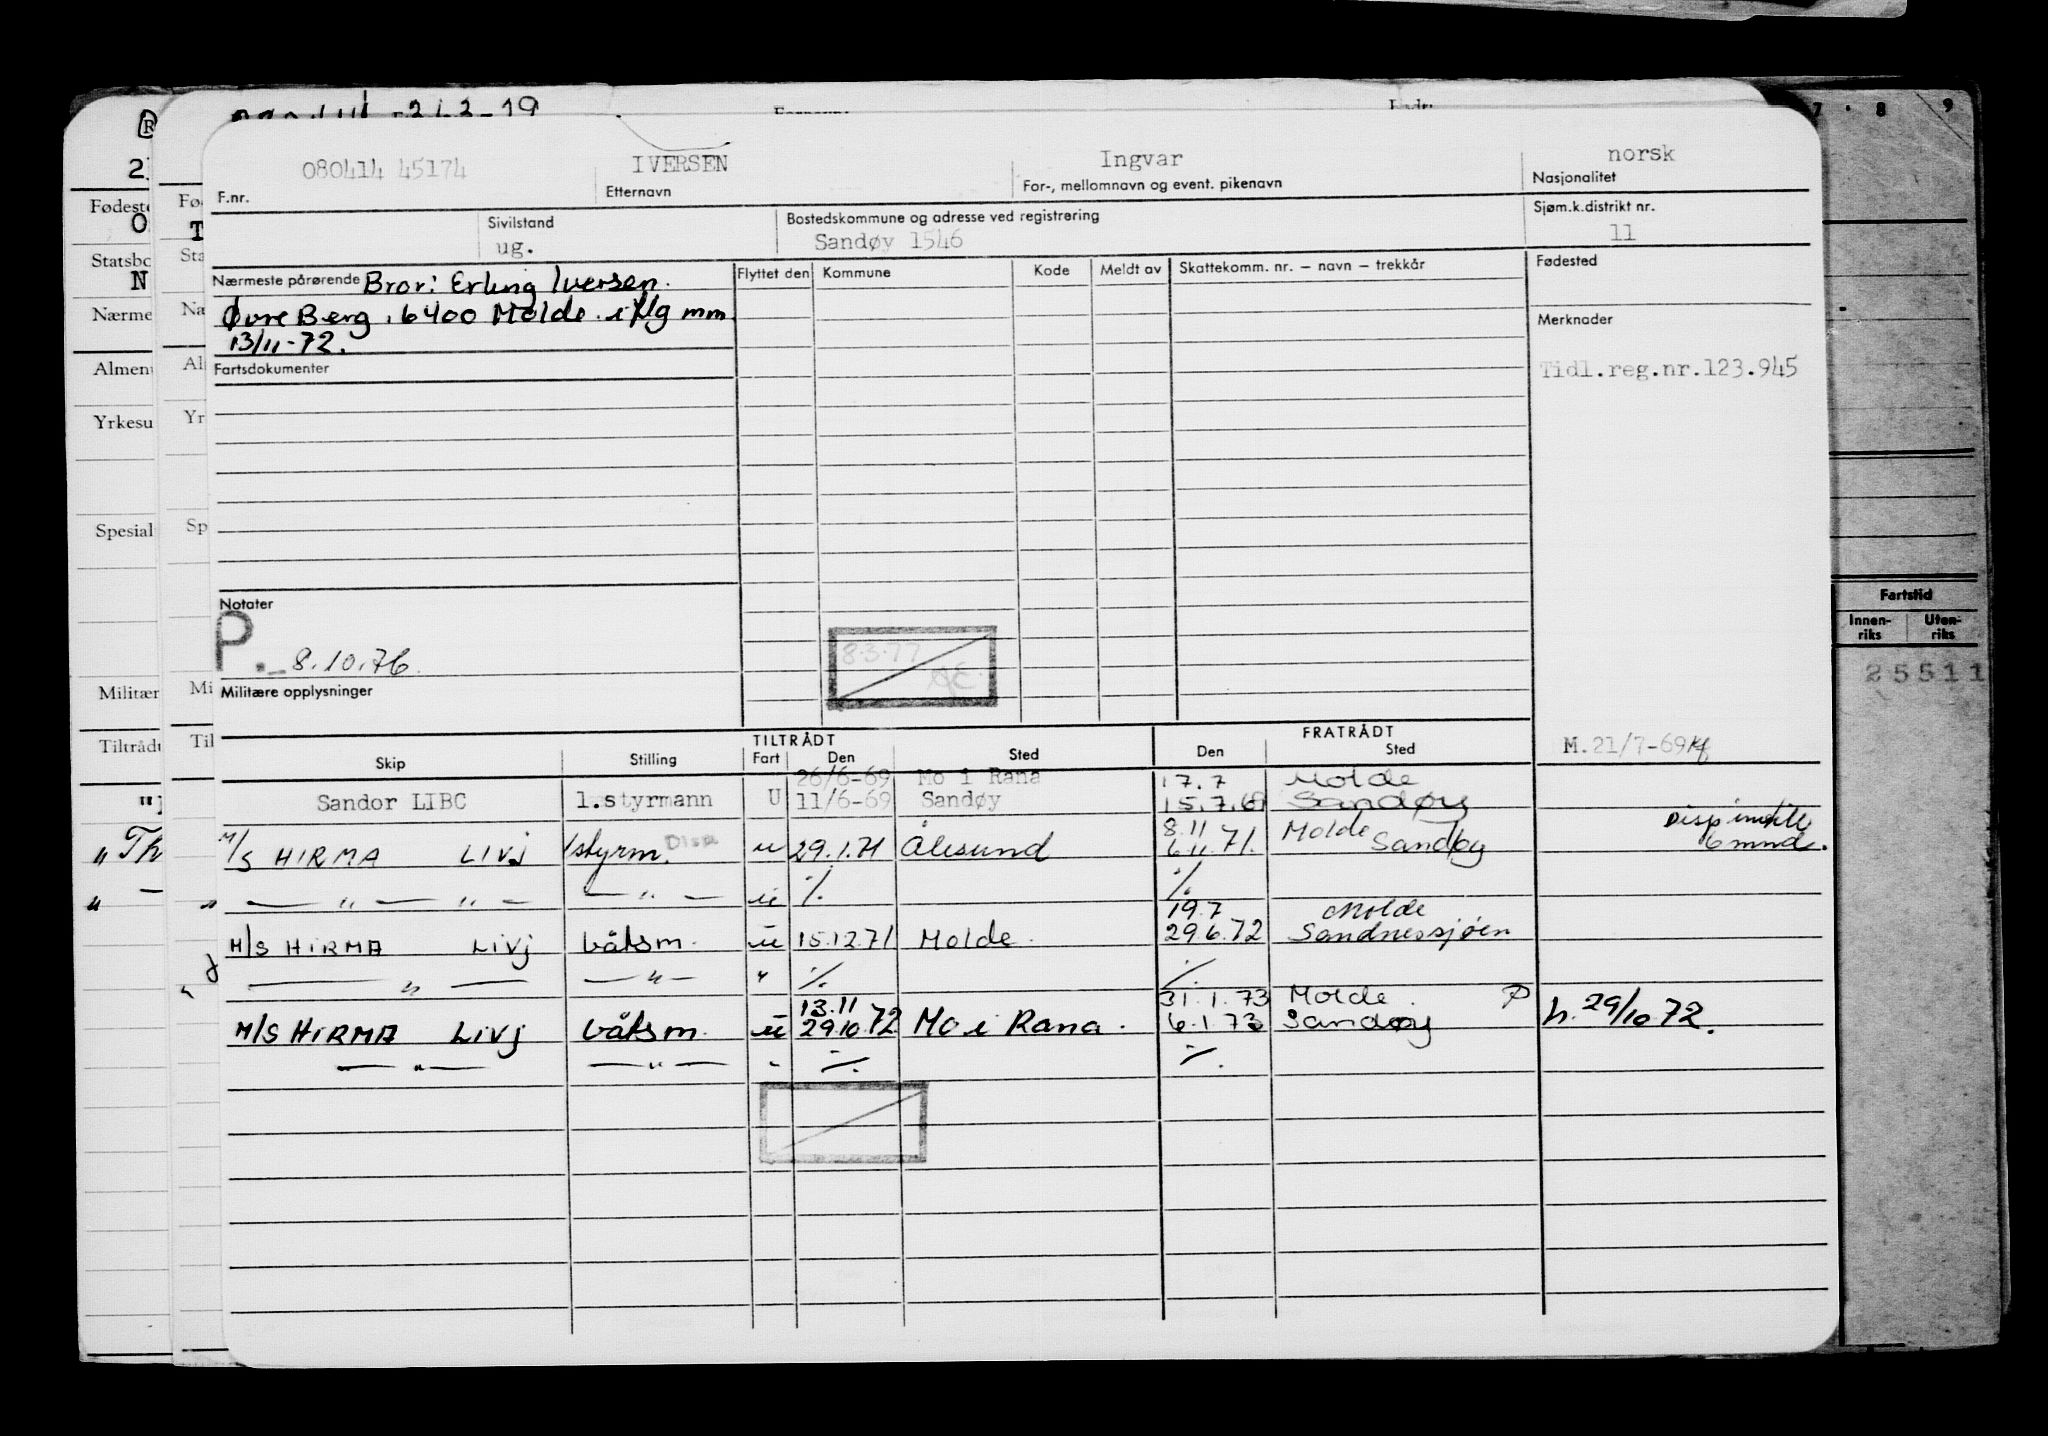 7 · 8 9
080414 45174 IVERSEN Ingvar norsk
F.nr. Etternavn For-, mellomnavn og event. pikenavn Nasjonalitet
Sivilstand Bostedskommune og adresse ved registrering Sjøm.k.distrikt nr.
ug. Sandøy 1546 11
Nærmeste pårørende Bror: Erling Iversen. Flyttet den Kommune Kode Meldt av Skattekomm. nr. – navn – trekkår Fødested
Øvre Berg, 6400 Molde. mm
13/11-72.
Merknader
Fartsdokumenter
Tidl.reg.nr.123.945
Notater
P. 8.10.76.
8.3.77
Militære opplysninger
Fartstid
Innen-riks Uten-riks
25511
TILTRÅDT FRATRÅDT M.21/7-69
Skip Stilling Fart Den Sted Den Sted
26/6-69 Mo i Rana 17.7 Molde
Sandor LIBC 1.styrmann U 11/6-69 Sandøy 15.7.69 Sandøy
8.11 Molde Disp
M/S HIRMA LIVJ 1styrm. Disp u 29.1.71 Ålesund 6.11.71. Sandøy 6 mnd.
— " — " — — " — u ·/. ·/.
19.7 Molde
M/S HIRMA LIVJ båtsm. u 15.12.71 Molde. 29.6.72 Sandnessjøen
— " — — " — " ·/. ·/.
13.11 31.1.73 Molde. P
M/S HIRMA LIVJ båtsm. u 29.10.72 Mo i Rana. 6.1.73 Sandøy h. 29/10 72.
— " — — " — " ·/. ·/.